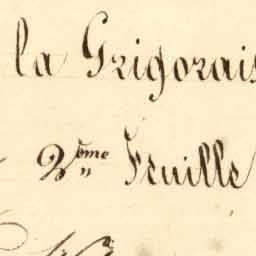 la Grigorais
2ème Feuille